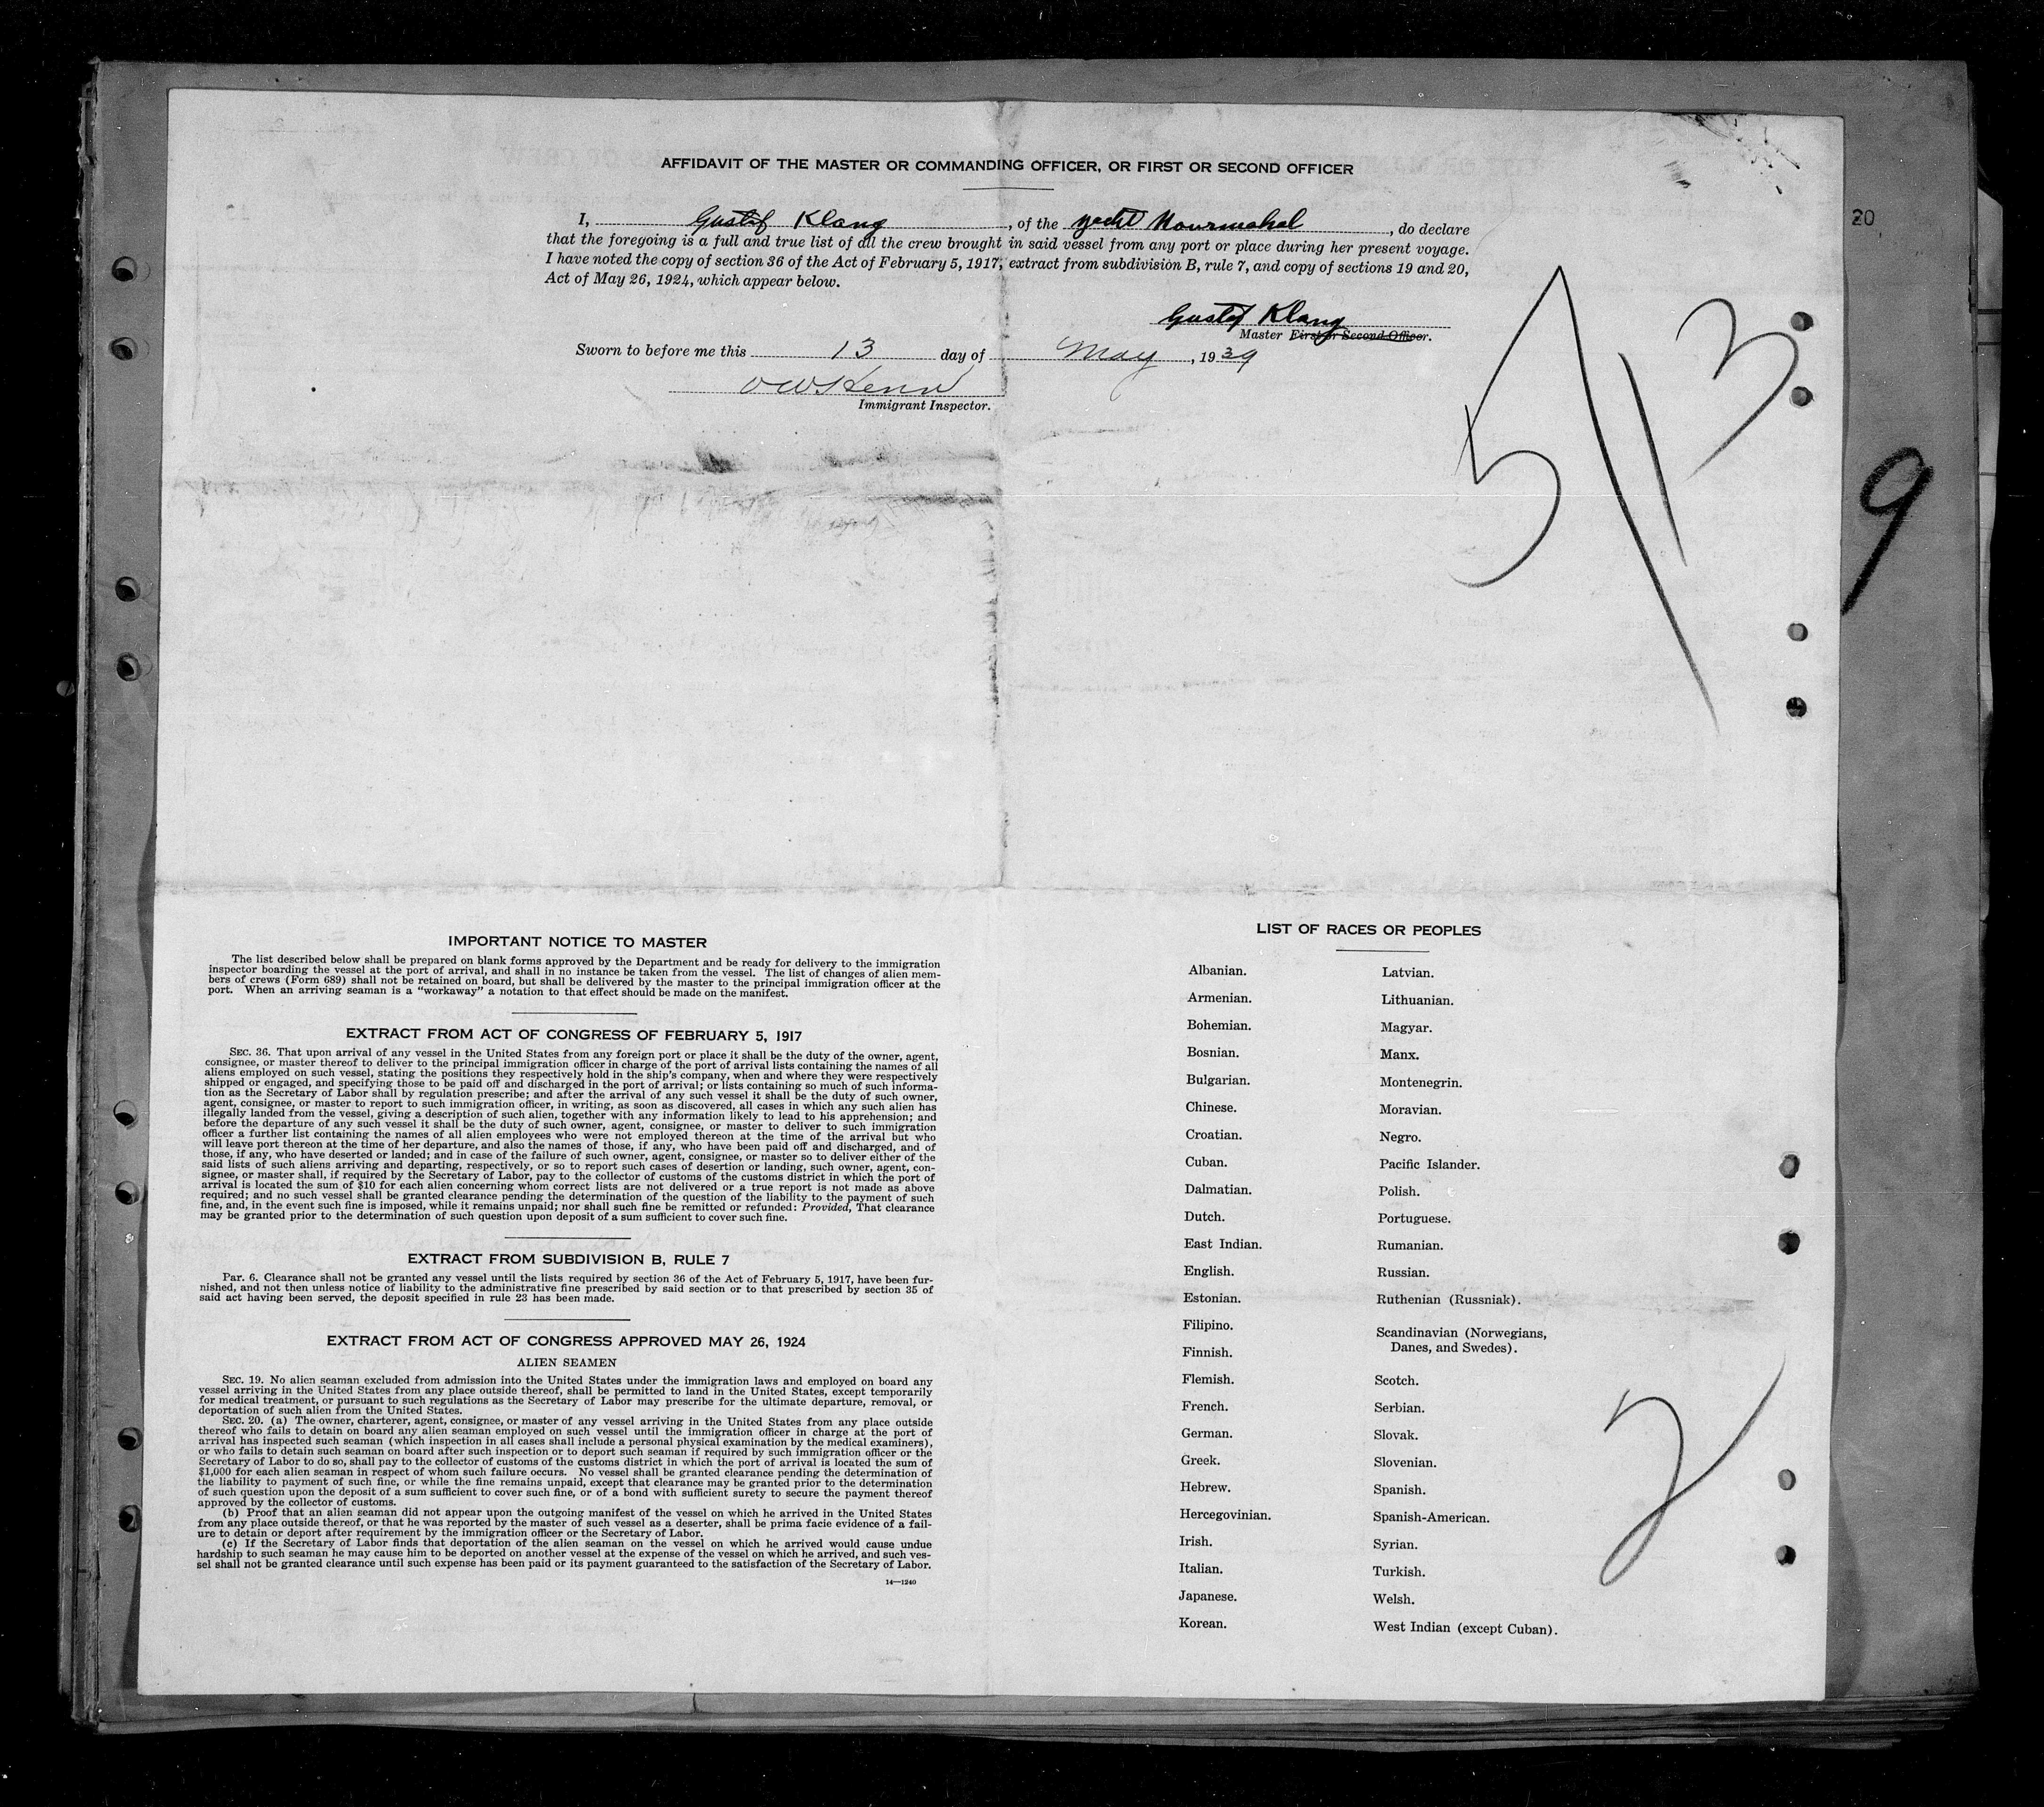 AFFIDAVIT OF THE MASTER OR COMMANDING OFFICER, OR FIRST OR SECOND OFFICER
I, Gustaf Klang, of the yacht Nourmahal, do declare
that the foregoing is a full and true list of all the crew brought in said vessel from any port or place during her present voyage.
I have noted the copy of section 36 of the Act of February 5, 1917, extract from subdivision B, rule 7, and copy of sections 19 and 20,
Act of May 26, 1924, which appear below.
Gustaf Klang
Master First or Second Officer.
Sworn to before me this 13 day of May, 1939
Immigrant Inspector.
20
5/13
9
IMPORTANT NOTICE TO MASTER
The list described below shall be prepared on blank forms approved by the Department and be ready for delivery to the immigration
inspector boarding the vessel at the port of arrival, and shall in no instance be taken from the vessel. The list of changes of alien mem-
bers of crews (Form 689) shall not be retained on board, but shall be delivered by the master to the principal immigration officer at the
port. When an arriving seaman is a "workaway" a notation to that effect should be made on the manifest.
EXTRACT FROM ACT OF CONGRESS OF FEBRUARY 5, 1917
SEC. 36. That upon arrival of any vessel in the United States from any foreign port or place it shall be the duty of the owner, agent,
consignee, or master thereof to deliver to the principal immigration officer in charge of the port of arrival lists containing the names of all
aliens employed on such vessel, stating the positions they respectively hold in the ship's company, when and where they were respectively
shipped or engaged, and specifying those to be paid off and discharged in the port of arrival; or lists containing so much of such informa-
tion as the Secretary of Labor shall by regulation prescribe; and after the arrival of any such vessel it shall be the duty of such owner,
agent, consignee, or master to report to such immigration officer, in writing, as soon as discovered, all cases in which any such alien has
illegally landed from the vessel, giving a description of such alien, together with any information likely to lead to his apprehension; and
before the departure of any such vessel it shall be the duty of such owner, agent, consignee, or master to deliver to such immigration
officer a further list containing the names of all alien employees who were not employed thereon at the time of the arrival but who
will leave port thereon at the time of her departure, and also the names of those, if any, who have been paid off and discharged, and of
those, if any, who have deserted or landed; and in case of the failure of such owner, agent, consignee, or master so to deliver either of the
said lists of such aliens arriving and departing, respectively, or so to report such cases of desertion or landing, such owner, agent, con-
signee, or master shall, if required by the Secretary of Labor, pay to the collector of customs of the customs district in which the port of
arrival is located the sum of $10 for each alien concerning whom correct lists are not delivered or a true report is not made as above
required; and no such vessel shall be granted clearance pending the determination of the question of the liability to the payment of such
fine, and, in the event such fine is imposed, while it remains unpaid; nor shall such fine be remitted or refunded: Provided, That clearance
may be granted prior to the determination of such question upon deposit of a sum sufficient to cover such fine.
EXTRACT FROM SUBDIVISION B, RULE 7
PAR. 6. Clearance shall not be granted any vessel until the lists required by section 36 of the Act of February 5, 1917, have been fur-
nished, and not then unless notice of liability to the administrative fine prescribed by said section or to that prescribed by section 35 of
said act having been served, the deposit specified in rule 23 has been made.
EXTRACT FROM ACT OF CONGRESS APPROVED MAY 26, 1924
ALIEN SEAMEN
SEC. 19. No alien seaman excluded from admission into the United States under the immigration laws and employed on board any
vessel arriving in the United States from any place outside thereof, shall be permitted to land in the United States, except temporarily
for medical treatment, or pursuant to such regulations as the Secretary of Labor may prescribe for the ultimate departure, removal, or
deportation of such alien from the United States.
SEC. 20. (a) The owner, charterer, agent, consignee, or master of any vessel arriving in the United States from any place outside
thereof who fails to detain on board any alien seaman employed on such vessel until the immigration officer in charge at the port of
arrival has inspected such seaman (which inspection in all cases shall include a personal physical examination by the medical examiners),
or who fails to detain such seaman on board after such inspection or to deport such seaman if required by such immigration officer or the
Secretary of Labor to do so, shall pay to the collector of customs of the customs district in which the port of arrival is located the sum of
$1,000 for each alien seaman in respect of whom such failure occurs. No vessel shall be granted clearance pending the determination of
the liability to payment of such fine, or while the fine remains unpaid, except that clearance may be granted prior to the determination
of such question upon the deposit of a sum sufficient to cover such fine, or of a bond with sufficient surety to secure the payment thereof
approved by the collector of customs.
(b) Proof that an alien seaman did not appear upon the outgoing manifest of the vessel on which he arrived in the United States
from any place outside thereof, or that he was reported by the master of such vessel as a deserter, shall be prima facie evidence of a fail-
ure to detain or deport after requirement by the immigration officer or the Secretary of Labor.
(c) If the Secretary of Labor finds that deportation of the alien seaman on the vessel on which he arrived would cause undue
hardship to such seaman he may cause him to be deported on another vessel at the expense of the vessel on which he arrived, and such ves-
sel shall not be granted clearance until such expense has been paid or its payment guaranteed to the satisfaction of the Secretary of Labor.
14—1240
LIST OF RACES OR PEOPLES
Albanian.
Armenian.
Bohemian.
Bosnian.
Bulgarian.
Chinese.
Croatian.
Cuban.
Dalmatian.
Dutch.
East Indian.
English.
Estonian.
Filipino.
Finnish.
Flemish.
French.
German.
Greek.
Hebrew.
Hercegovinian.
Irish.
Italian.
Japanese.
Korean.
Latvian.
Lithuanian.
Magyar.
Manx.
Montenegrin.
Moravian.
Negro.
Pacific Islander.
Polish.
Portuguese.
Rumanian.
Russian.
Ruthenian (Russniak).
Scandinavian (Norwegians,
Danes, and Swedes).
Scotch.
Serbian.
Slovak.
Slovenian.
Spanish.
Spanish-American.
Syrian.
Turkish.
Welsh.
West Indian (except Cuban).
2